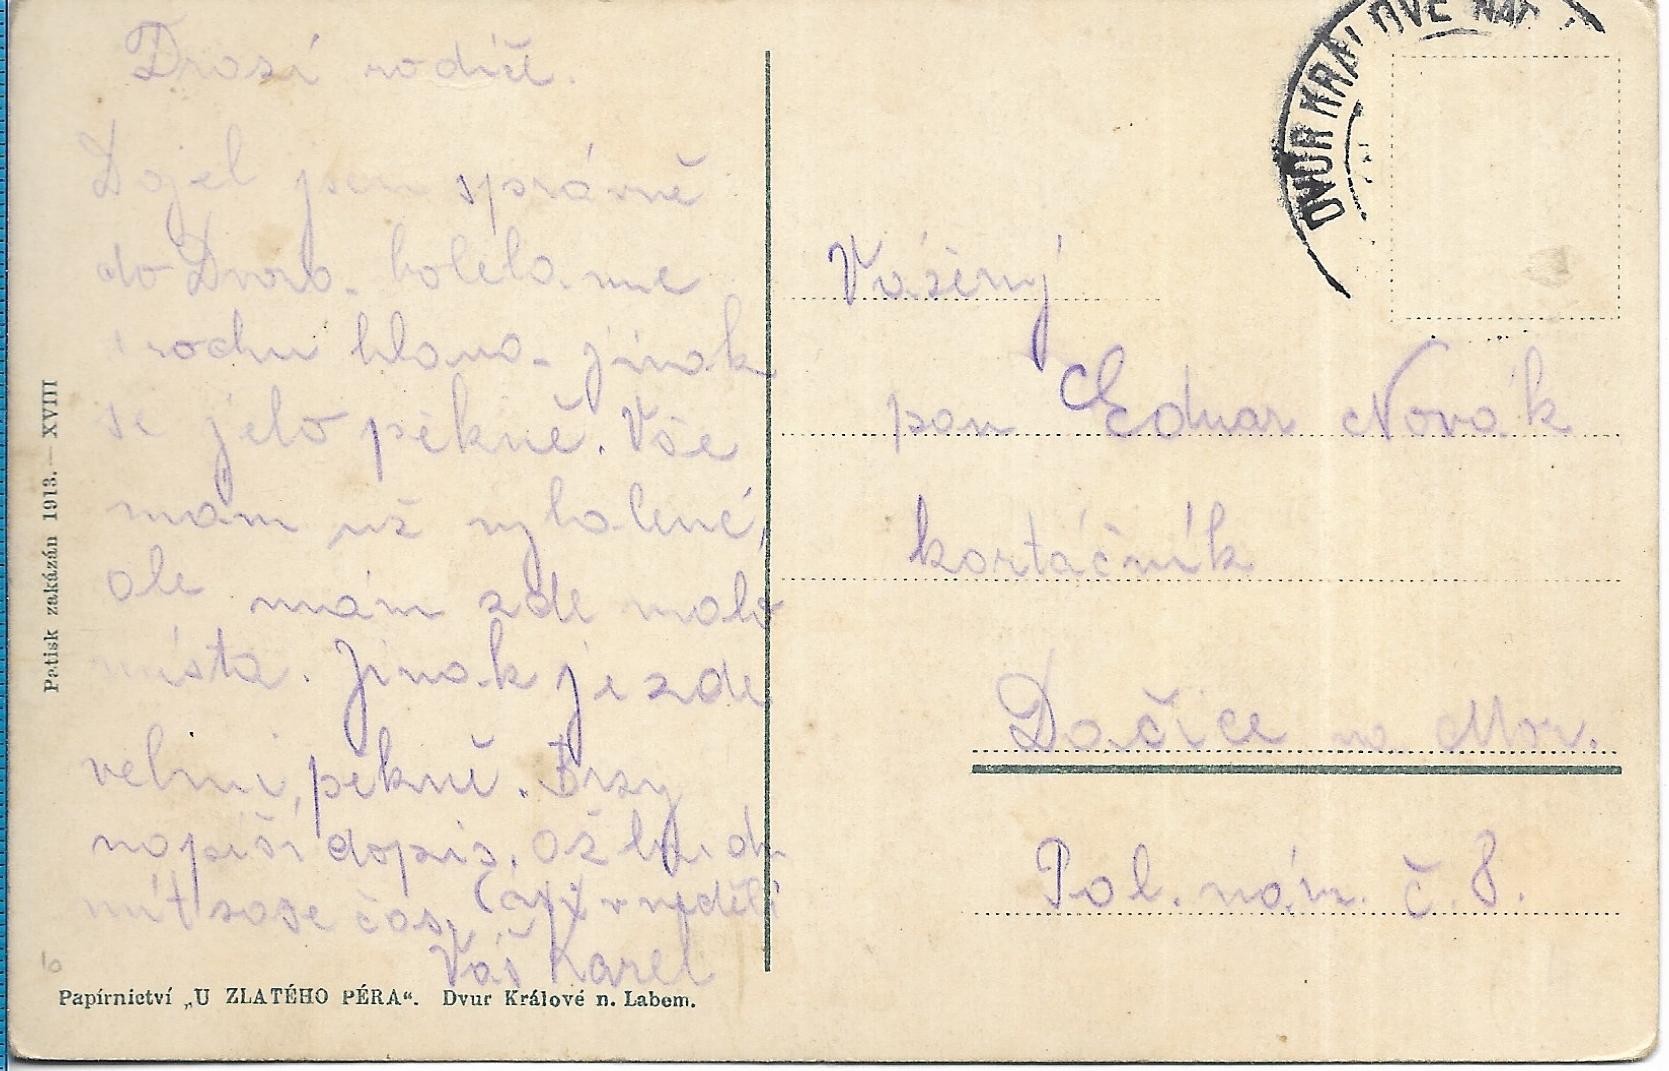 Drazí rodiče.
Dojel jsem správně
do Dvora. bolela mne
trochu hlava. jinak
se jelo pěkně. Vše
mám už vybalené,
ale mám zde málo
místa. Jinak je zde
velmi pěkně. Brzy
napíši dopis. až budu
mít zase čas. v neděli
Váš Karel
Papírnictví „U ZLATÉHO PÉRA“. Dvur Králové n. Labem.
Patisk zakázán 1913. — XVIII
DVŮR KRÁLOVÉ NAD
Vážený
pan Eduar Novák
kartáčník
Dačice na Mor.
Pal. nám. č. 8.